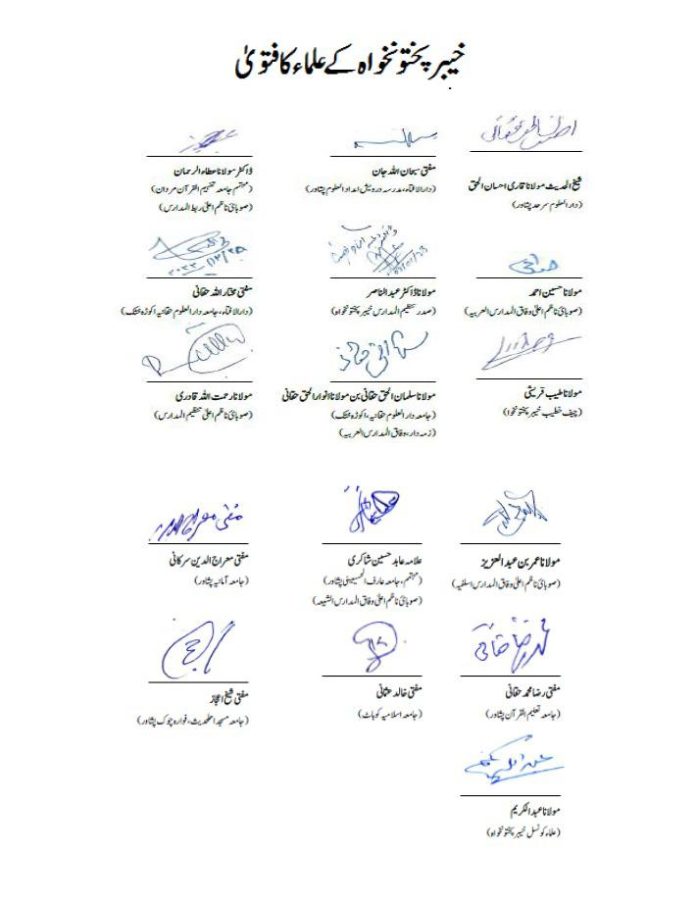 خیبر پختونخواہ کے علماء کا فتویٰ
شیخ الحدیث مولانا قاری احسان الحق
(دارالعلوم سرحد پشاور)
مفتی سبحان اللہ جان
(دارالافتاء، مدرسہ درویش امداد العلوم پشاور)
ڈاکٹر مولانا عطاء الرحمان
(مہتمم جامعہ تفہیم القرآن مردان)
(صوبائی ناظم اعلیٰ رابط المدارس)
مولانا حسین احمد
(صوبائی ناظم اعلیٰ وفاق المدارس العربیہ)
مولانا ڈاکٹر عبدالناصر
(صدر تنظیم المدارس خیبر پختونخواہ)
مفتی مختار اللہ حقانی
(دارالافتاء، جامعہ دارالعلوم حقانیہ اکوڑہ خٹک)
مولانا طیب قریشی
(چیف خطیب خیبر پختونخوا)
مولانا سلمان الحق حقانی بن مولانا انوار الحق حقانی
(جامعہ دارالعلوم حقانیہ، اکوڑہ خٹک)
(ذمہ دار، وفاق المدارس العربیہ)
مولانا رحمت اللہ قادری
(صوبائی ناظم اعلیٰ تنظیم المدارس)
مولانا عمر بن عبدالعزیز
(صوبائی ناظم اعلیٰ وفاق المدارس السلفیہ)
علامہ عابد حسین شاکری
(مہتمم، جامعہ عارف الحسینی پشاور)
(صوبائی ناظم اعلیٰ وفاق المدارس الشیعہ)
مفتی معراج الدین سرکانی
(جامعہ آمانیہ پشاور)
مفتی رضا محمد حقانی
(جامعہ تعلیم القرآن پشاور)
مفتی خالد عثمانی
(جامعہ اسلامیہ کوہاٹ)
مفتی شیخ اعجاز
(جامعہ مسجد اہلحدیث، فوارہ چوک پشاور)
مولانا عبدالکریم
(علماء کونسل خیبر پختونخواہ)